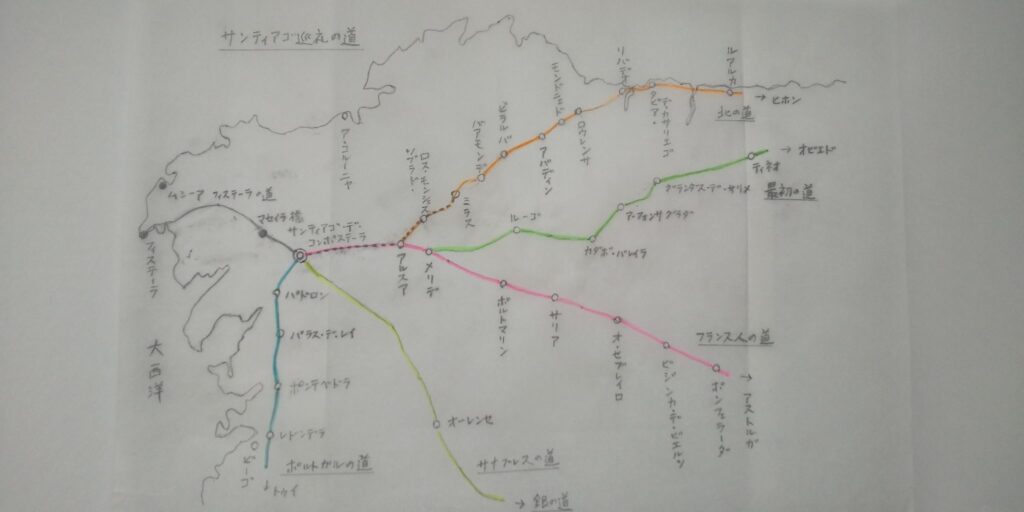 サンティアゴ巡礼の道
ルアルカ
→ ヒホン
北の道
リバデオ
ロウレンサ
アバディン
ビラルバ
バアモンデ
ミラス
ソブラド・
ロス・モンシェス
ア・コルーニャ
→ オビエド
ティネオ
最初の道
グランダス・デ・サリメ
ア・フォンサグラダ
カダボ・バレイラ
ルーゴ
ムシーア
フィステーラの道
マセイラ橋
サンティアゴ・デ・
コンポステーラ
フィステーラ
アルスア
メリデ
ポルトマリン
サリア
オ・セブレイロ
フランス人の道
ポンフェラーダ
→ アストルガ
パドロン
ポンテベドラ
レドンデラ
ビーゴ
↓トゥイ
ポルトガルの道
大西洋
オーレンセ
サナブレスの道
→ 銀の道